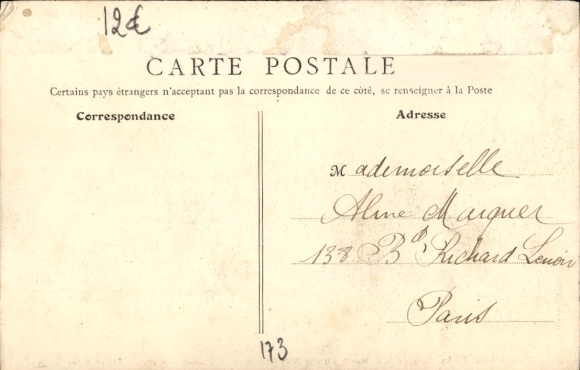 12€
CARTE POSTALE
Certains pays étrangers n'acceptant pas la correspondance de ce côté, se renseigner à la Poste
Correspondance
Adresse
Mademoiselle
Aline Marquer
138 Bd Richard Lenoir
Paris
173